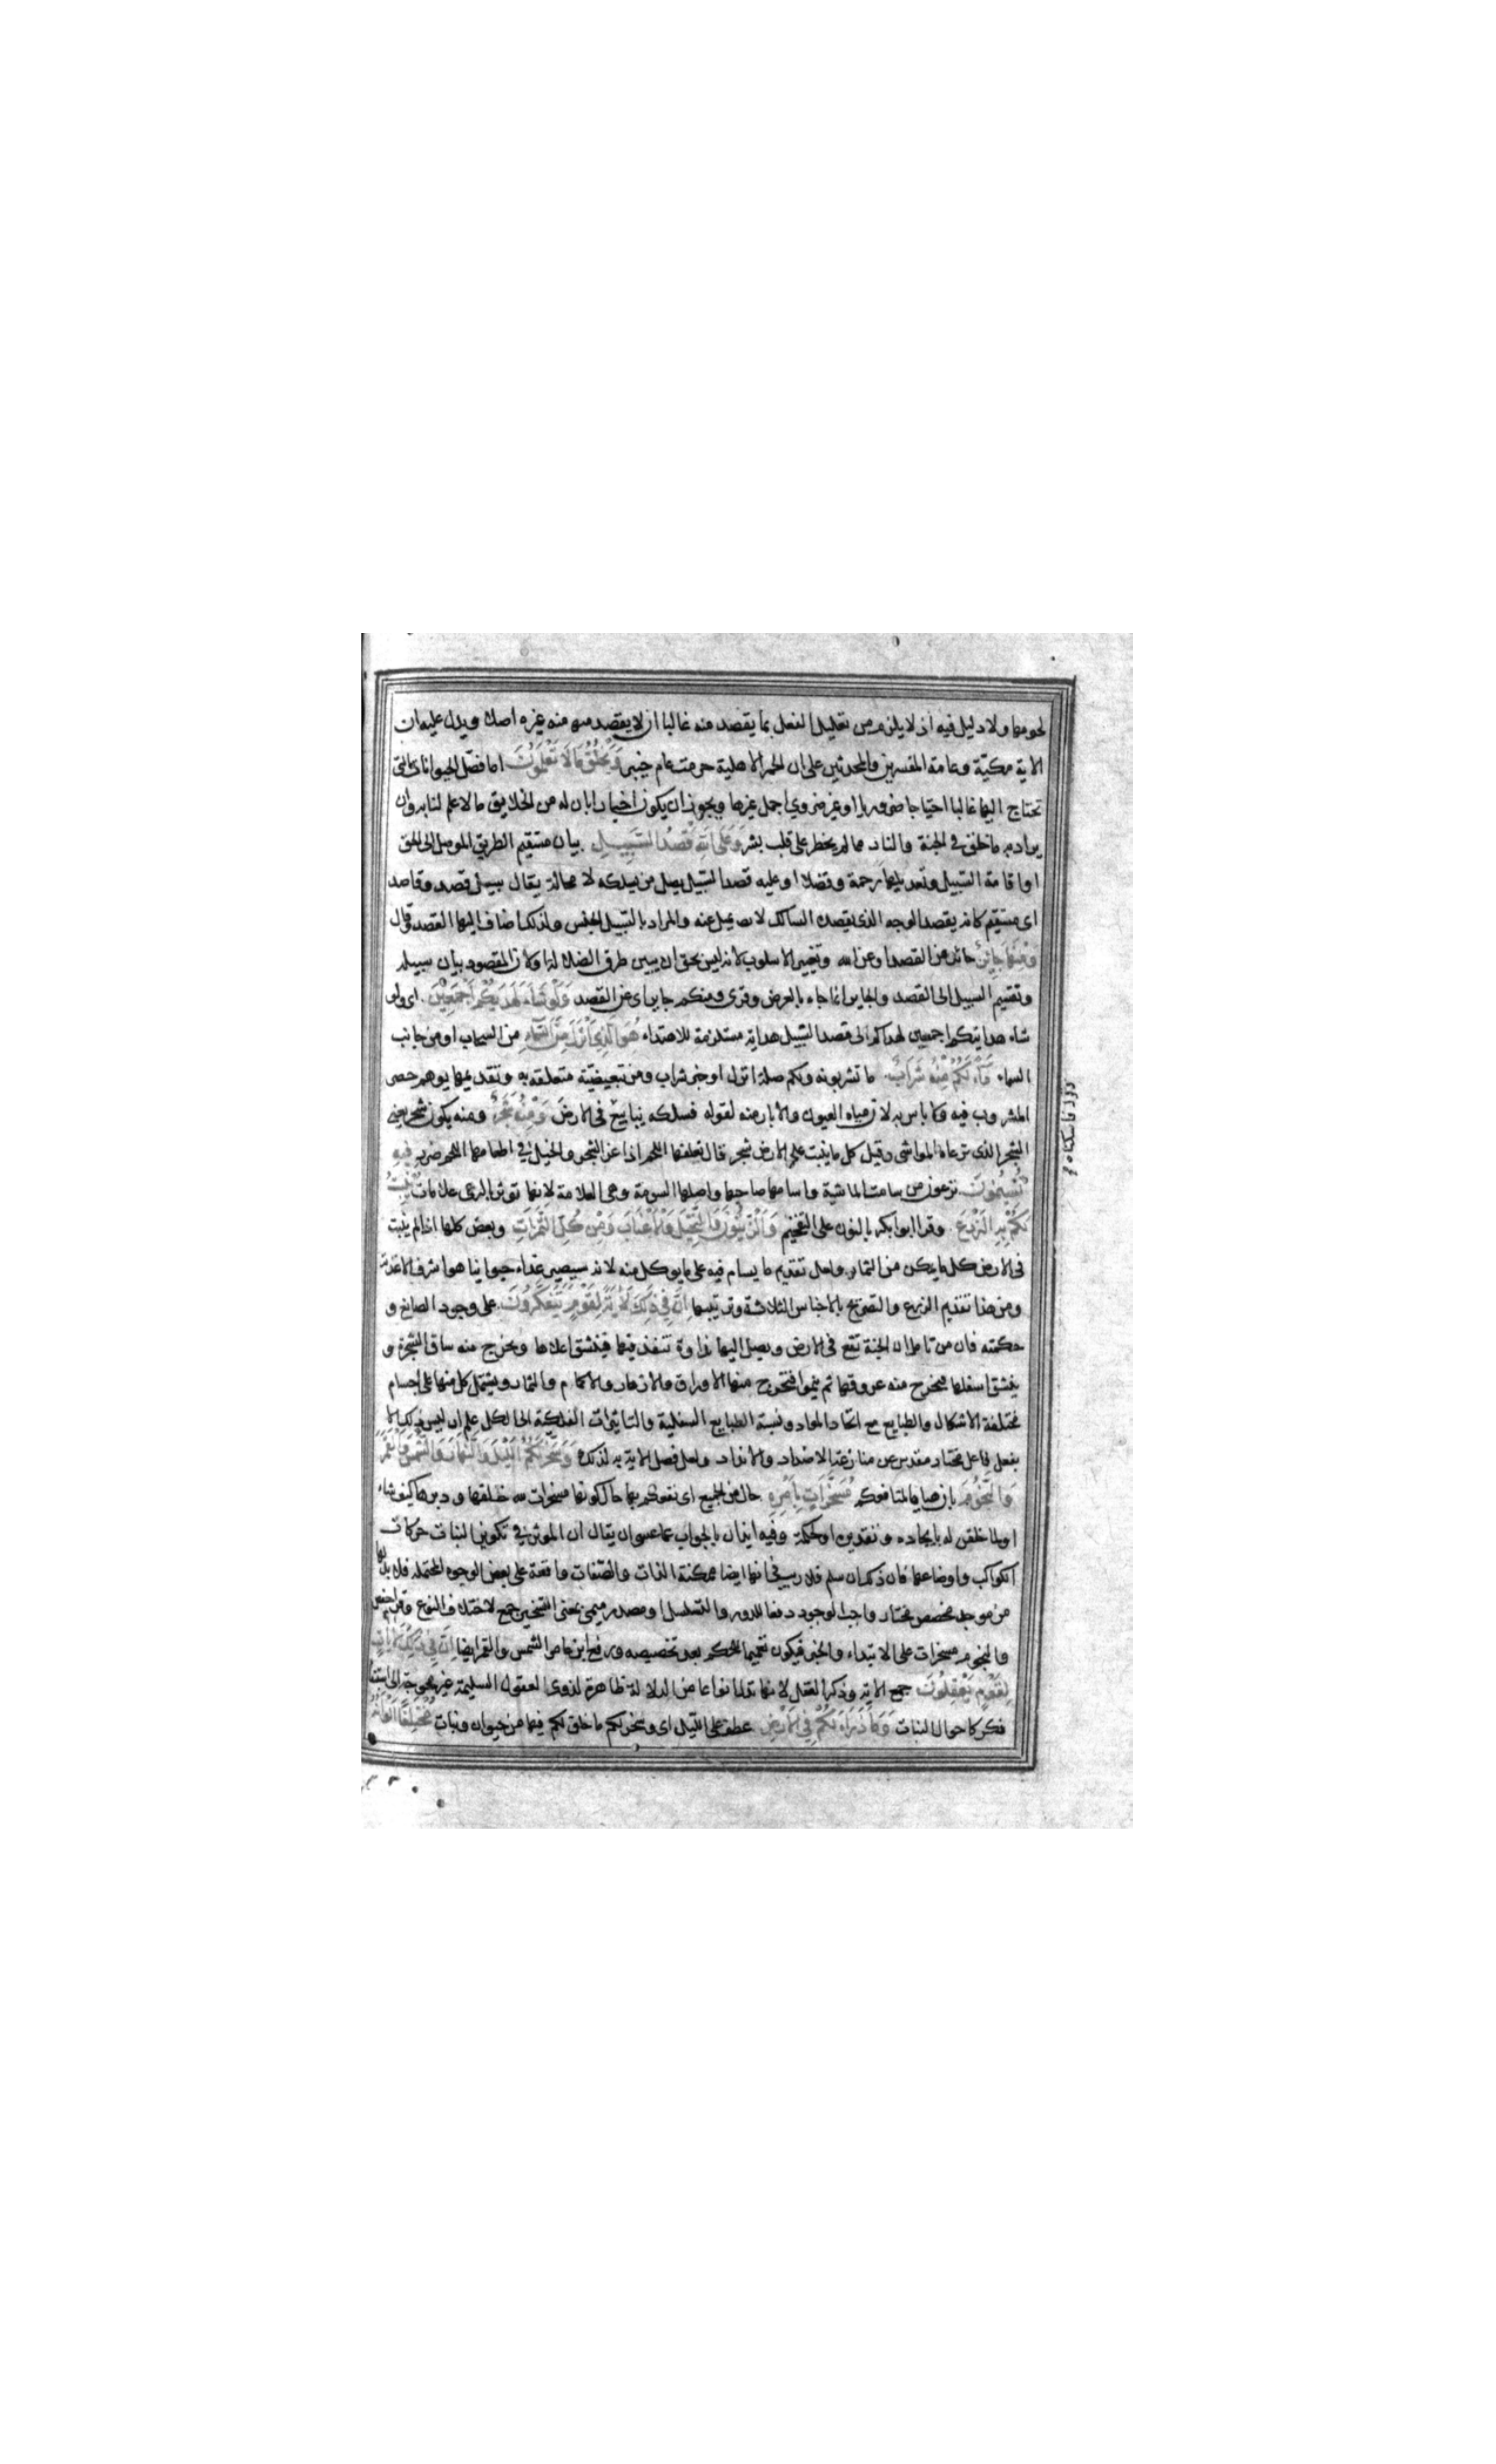 لحومها ولا دليل فيه اذ لا يلزم من تعليل الفعل بما يقصد منه غالبا ان لا يقصد منه غيره اصلا ويدل عليه ان
الاية مكيّة وعامة المفسرين والمحدثين على ان الحمر الاهلية حرمت عام خيبر وَيَخْلُقُ مَا لَا تَعْلَمُونَ لما فصّل الحيوانات التى
تحتاج اليها غالبا احتياجا ضروريا او غير ضروري اجمل غيرها ويجوز ان يكون اخبارا بان له من الخلايق ما لا علم لنا به وان
يراد به ما خلق في الجنة والنار مما لم يخطر على قلب بشر وَعَلَى اللهِ قَصْدُ السَّبِيلِ بيان مستقيم الطريق الموصل الى الحق
او اقامة السّبيل وتعديلها رحمة وفضلا او عليه قصد السّبيل يصل من يسلكه لا محالة يقال سبيل قصد وقاصد
اى مستقيم كانه يقصد الوجه الذى يقصده السالك لا يميل عنه والمراد بالسّبيل الجنس ولذلك اضاف اليها القصد وقال
وَمِنْهَا جَائِرٌ حائد عن القصد او عن الله وتغيير الاسلوب لانه ليس بحق ان يبين طرق الضلالة او لان المقصود بيان سبيله
وتقسيم السبيل الى القصد والجاير انما جاء بالعرض وقرئ ومنكم جاير اى عن القصد وَلَوْ شَاءَ لَهَدَيكُمْ اَجْمَعِينَ اى ولو
شاء هدايتكم اجمعين لهداكم الى قصد السّبيل هداية مستلزمة للاهتداء هُوَ الَّذِي اَنْزَلَ مِنَ السَّمَاءِ من السحاب او من جانب
السماء مَاءً لَكُمْ مِنْهُ شَرَابٌ ما تشربونه ولكم صلة انزل او خبر شراب ومن تبعيضيّة متعلقة به وتقديمها يوهم حصر
المشروب فيه ولا باس به لان مياه العيون والابار منه لقوله فسلكه ينابيع فى الارض وَمِنْهُ شَجَرٌ ومنه يكون شجر يعنى
الشجر الذى ترعاه المواشى وقيل كل ما ينبت على الارض شجر قال نعلفها اللحم اذا عز الشجر والخيل في اطعامها اللحم ضرر فِيهِ
تُسِيمُونَ ترعون من سامت الماشية واسامها صاحبها واصلها السومة وهى العلامة لانها تؤثر بالرعى علامات يُنْبِتُ
لَكُمْ بِهِ الزَّرْعَ وقرا ابو بكر بالنون على التفخيم وَالزَّيْتُونَ وَالنَّخِيلَ وَالْاَعْنَابَ وَمِنْ كُلِّ الثَّمَرَاتِ وبعض كلها اذ لم ينبت
فى الارض كل ما يمكن من الثمار ولعل تقديم ما يسام فيه على ما يوكل منه لانه سيصير غذاء حيوانيا هو اشرف الاغذية
ومن هذا تقديم الزرع والتصريح بالاجناس الثلاثة وترتيبها اِنَّ فِي ذَلِكَ لَاٰيَةً لِقَوْمٍ يَتَفَكَّرُونَ على وجود الصانع و
حكمته فان من تامل ان الحبة تقع فى الارض ويصل اليها نداوة تنفذ فيها فينشق اعلاها ويخرج منه ساق الشجرة و
ينشق اسفلها فيخرج منه عروقها ثم ينموا فتخرج منها الاوراق والازهار والاكمام والثمار ويشتمل كل منها على اجسام
مختلفة الاشكال والطبايع مع اتحاد المواد ونسبة الطبايع السفلية والتاثيرات الفلكية الى الكل علم ان ليس ذلك الا
بفعل فاعل مختار مقدس عن منازعة الاضداد والانداد ولعل فصل الاية به لذلك وَسَخَّرَ لَكُمُ اللَّيْلَ وَالنَّهَارَ وَالشَّمْسَ وَالْقَمَرَ
وَالنُّجُومَ بان هياها لمنافعكم مُسَخَّرَاتٍ بِاَمْرِهِ حال من الجميع اى نفعكم بها حال كونها مسخرات لله خلقها ودبرها كيف شاء
او لما خلقن له بايجاده وتقديره او لحكمة وفيه ايذان بالجواب عما عسى ان يقال ان المؤثر في تكوين النبات حركات
الكواكب واوضاعها فان ذلك ان سلم فلا ريب في انها ايضا ممكنة الذات والصّفات واقعة على بعض الوجوه المحتملة فلا بد لها
من موجد مخصص مختار واجب الوجود دفعا للدور والتسلسل او مصدر ميمى بمعنى التسخير جمع لاختلاف النوع وقرا حفص
والنجوم مسخرات على الابتداء والخبر فيكون تعميما للحكم بعد تخصيصه ورفع ابن عامر الشمس والقمر ايضا اِنَّ فِي ذَلِكَ لَاٰيَاتٍ
لِقَوْمٍ يَعْقِلُونَ جمع الاية وذكر العقل لانها تدل انواعا من الدلالة ظاهرة لذوى العقول السليمة غير محوجة الى استيفاء
فكر كاحوال النبات وَمَا ذَرَاَ لَكُمْ فِي الْاَرْضِ عطف على اللّيل اى وسخر لكم ما خلق لكم فيها من حيوان ونبات مُخْتَلِفًا اَلْوَانُهُ